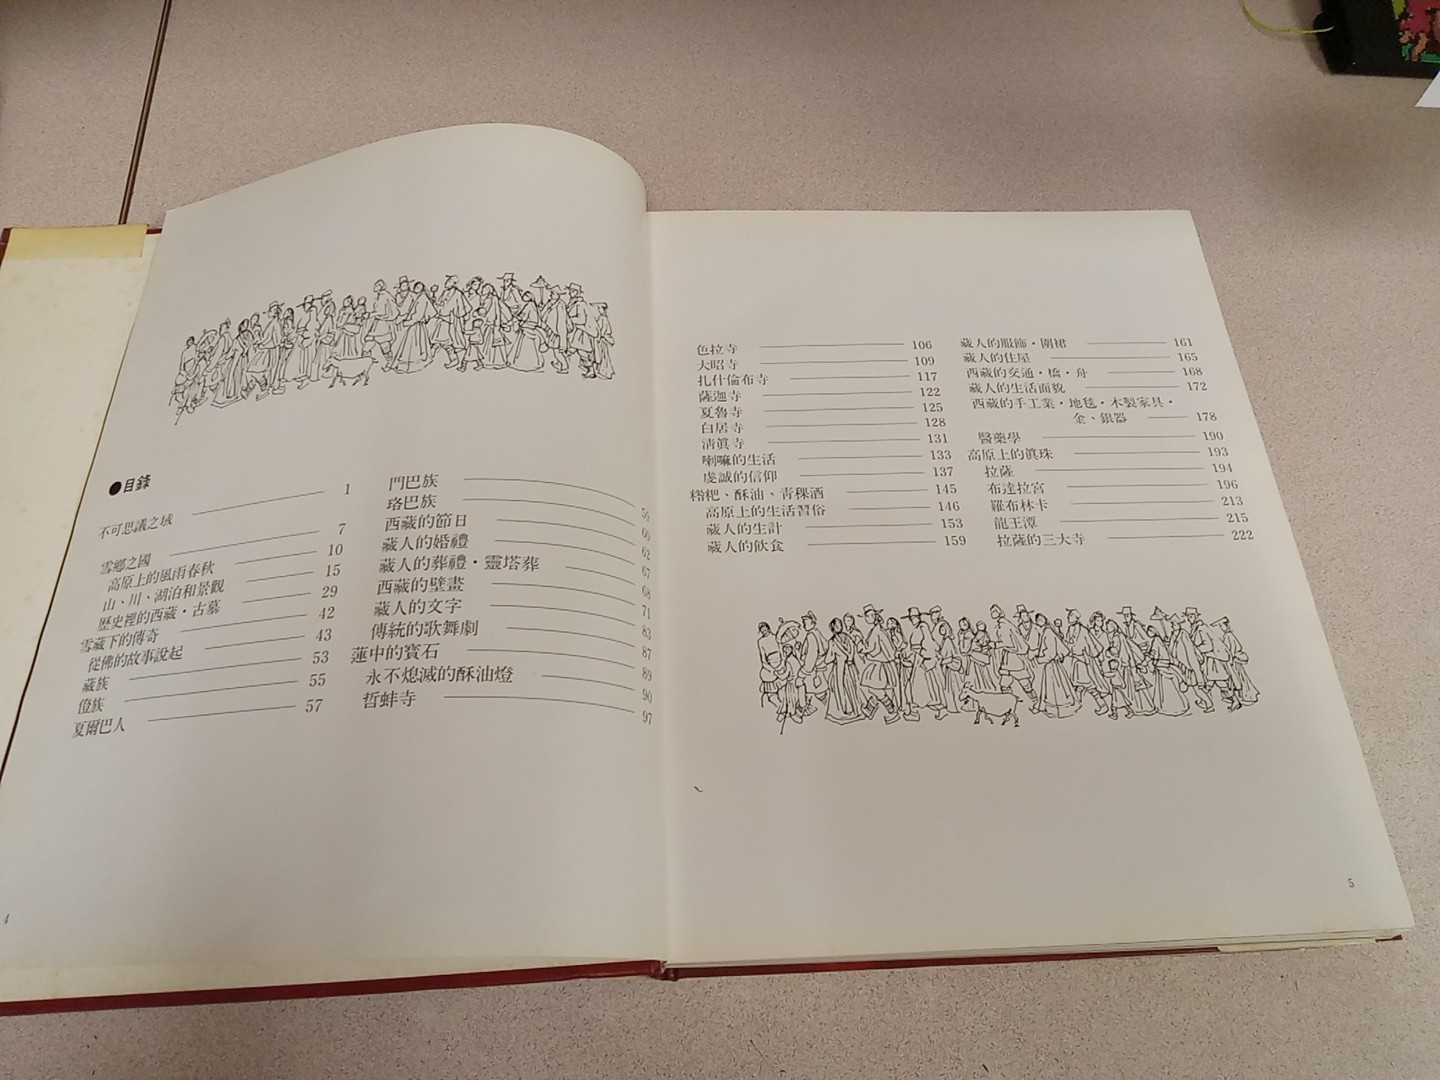 ●目錄
不可思議之域 1
雪鄉之國 7
高原上的風雨春秋 10
山、川、湖泊和景觀 15
歷史裡的西藏・古墓 29
雪藏下的傳奇 42
從佛的故事說起 43
藏族 53
僜族 55
夏爾巴人 57
門巴族 59
珞巴族 60
西藏的節日 62
藏人的婚禮 67
藏人的葬禮・靈塔葬 68
西藏的壁畫 71
藏人的文字 83
傳統的歌舞劇 87
蓮中的寶石 89
永不熄滅的酥油燈 90
哲蚌寺 97
4
色拉寺 106
大昭寺 109
扎什倫布寺 117
薩迦寺 122
夏魯寺 125
白居寺 128
清眞寺 131
喇嘛的生活 133
虔誠的信仰 137
糌粑、酥油、青稞酒 145
高原上的生活習俗 146
藏人的生計 153
藏人的飲食 159
藏人的服飾・圍裙 161
藏人的住屋 165
西藏的交通・橋・舟 168
藏人的生活面貌 172
西藏的手工業・地毯・木製家具・
金、銀器 178
醫藥學 190
高原上的眞珠 193
拉薩 194
布達拉宮 196
羅布林卡 213
龍王潭 215
拉薩的三大寺 222
5